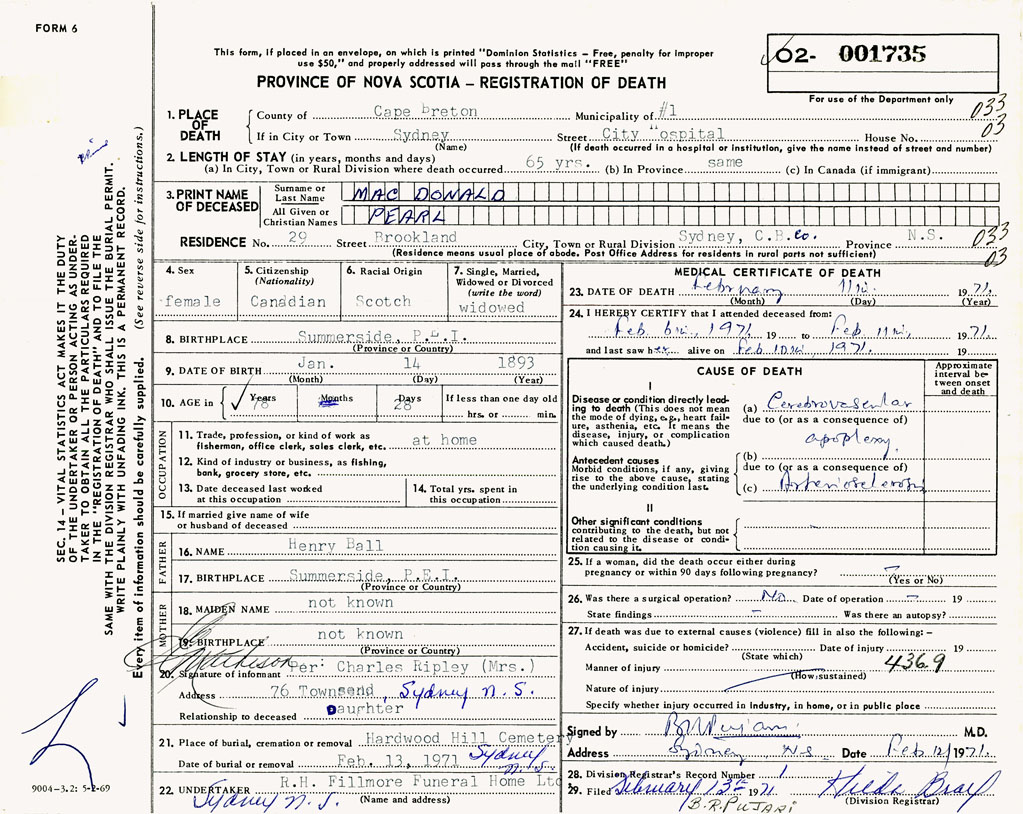 FORM 6
This form, if placed in an envelope, on which is printed "Dominion Statistics – Free, penalty for improper
use $50," and properly addressed will pass through the mail "FREE"
PROVINCE OF NOVA SCOTIA – REGISTRATION OF DEATH
02- 001735
For use of the Department only
1. PLACE OF DEATH
County of Cape Breton Municipality of #1 033
If in City or Town Sydney Street City Hospital House No. 03
(Name) (If death occurred in a hospital or institution, give the name instead of street and number)
2. LENGTH OF STAY (in years, months and days)
(a) In City, Town or Rural Division where death occurred 65 yrs. (b) In Province same (c) In Canada (if immigrant)
3. PRINT NAME OF DECEASED
Surname or Last Name MAC DONALD
All Given or Christian Names PEARL
RESIDENCE No. 29 Street Brookland City, Town or Rural Division Sydney, C.B.Co. Province N.S. 033
(Residence means usual place of abode. Post Office Address for residents in rural parts not sufficient) 03
4. Sex
female
5. Citizenship (Nationality)
Canadian
6. Racial Origin
Scotch
7. Single, Married, Widowed or Divorced (write the word)
widowed
8. BIRTHPLACE Summerside, P.E.I.
(Province or Country)
9. DATE OF BIRTH Jan. 14 1893
(Month) (Day) (Year)
10. AGE in Years 78 Months Days 28 If less than one day old
hrs. or min.
OCCUPATION
11. Trade, profession, or kind of work as
fisherman, office clerk, sales clerk, etc. at home
12. Kind of industry or business, as fishing,
bank, grocery store, etc.
13. Date deceased last worked
at this occupation
14. Total yrs. spent in
this occupation
15. If married give name of wife
or husband of deceased
FATHER
16. NAME Henry Ball
17. BIRTHPLACE Summerside, P.E.I.
(Province or Country)
MOTHER
18. MAIDEN NAME not known
19. BIRTHPLACE not known
(Province or Country)
20. Signature of informant Per: Charles Ripley (Mrs.)
Address 76 Townsend, Sydney N.S.
Relationship to deceased Daughter
21. Place of burial, cremation or removal Hardwood Hill Cemetery
Date of burial or removal Feb. 13, 1971 Sydney N.S.
22. UNDERTAKER R.H. Fillmore Funeral Home Ltd
Sydney N.S. (Name and address)
MEDICAL CERTIFICATE OF DEATH
23. DATE OF DEATH February 11th 1971.
(Month) (Day) (Year)
24. I HEREBY CERTIFY that I attended deceased from:
Feb. 6th, 1971 19 to Feb 11th, 1971.
and last saw her alive on Feb 10th, 1971. 19
CAUSE OF DEATH
Approximate interval between onset and death
I
Disease or condition directly leading
to death (This does not mean
the mode of dying, e.g., heart failure,
asthenia, etc. It means the
disease, injury, or complication
which caused death.)
(a) Cerebrovascular
due to (or as a consequence of)
apoplexy
Antecedent causes
Morbid conditions, if any, giving
rise to the above cause, stating
the underlying condition last.
(b)
due to (or as a consequence of)
(c) Arteriosclerosis
II
Other significant conditions
contributing to the death, but not
related to the disease or condition
causing it.
25. If a woman, did the death occur either during
pregnancy or within 90 days following pregnancy? –
(Yes or No)
26. Was there a surgical operation? No Date of operation – 19
State findings – Was there an autopsy?
27. If death was due to external causes (violence) fill in also the following: –
Accident, suicide or homicide? Date of injury 19
(State which)
Manner of injury 4369
(How sustained)
Nature of injury
Specify whether injury occurred in industry, in home, or in public place
Signed by M.D.
Address Sydney NS Date Feb 12/1971.
28. Division Registrar's Record Number 1
29. Filed February 13th 1971 Hilda
B.R. PUJARI (Division Registrar)
SEC. 14 – VITAL STATISTICS ACT MAKES IT THE DUTY
OF THE UNDERTAKER OR PERSON ACTING AS UNDERTAKER
TO OBTAIN ALL THE PARTICULARS REQUIRED
IN THE "REGISTRATION OF DEATH" AND TO FILE THE
SAME WITH THE DIVISION REGISTRAR WHO SHALL ISSUE THE BURIAL PERMIT.
WRITE PLAINLY WITH UNFADING INK. THIS IS A PERMANENT RECORD.
Every item of information should be carefully supplied. (See reverse side for instructions.)
9004-3.2: 5-2-69